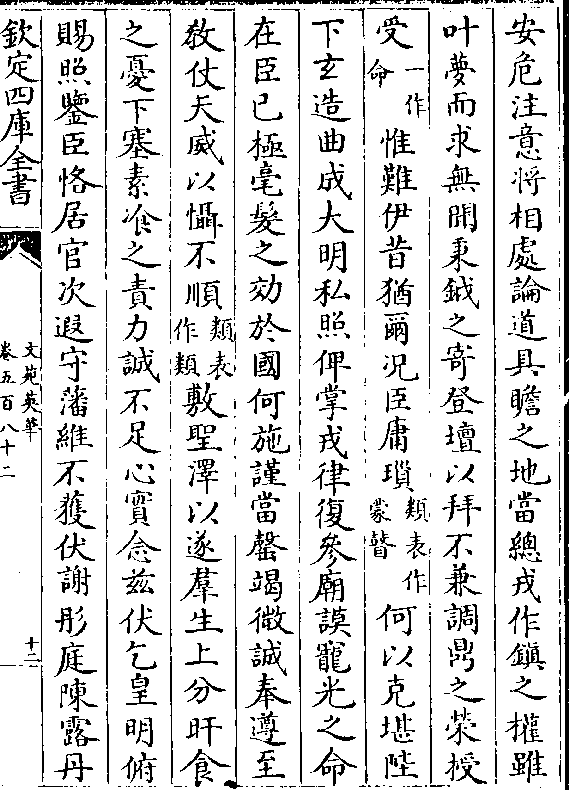 安危注意將相處論道具瞻之地當總戎作鎮之權雖
叶夢而求無聞秉鉞之寄登壇以拜不兼調鼎之榮授
受一作命惟難伊昔猶爾况臣庸瑣類表作蒙瞽何以克堪陛
下玄造曲成大明私照俾掌戎律復參廟謨寵光之命
在臣已極毫髮之効於國何施謹當罄竭微誠奉遵至
敎仗天威以懾不順類表作類敷聖澤以遂羣生上分旰食
之憂下塞素飡之責力誠不足心實念兹伏乞皇明俯
賜照鑒臣恪居官次遐守藩維不獲伏謝彤庭陳露丹
欽定四庫全書
文苑英華
卷五百八十二
十二